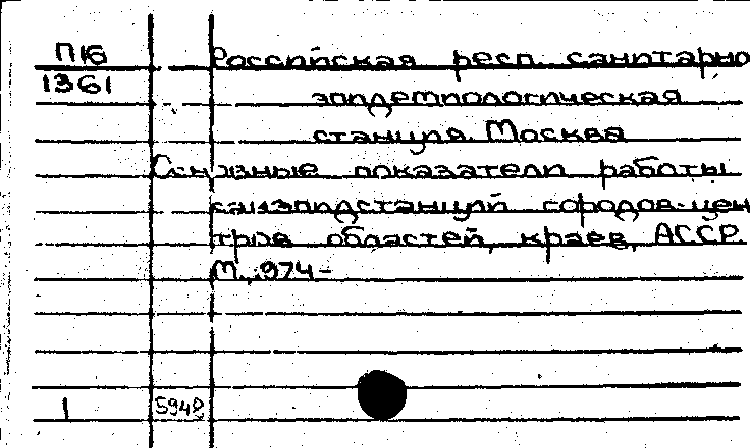 П16
1361
Российская респ. санитарно
эпидемиологическая
станция. Москва
Основные показатели работы
санэпидстанций городов-цен
тров областей, краев, АССР.
М., 1974-
1